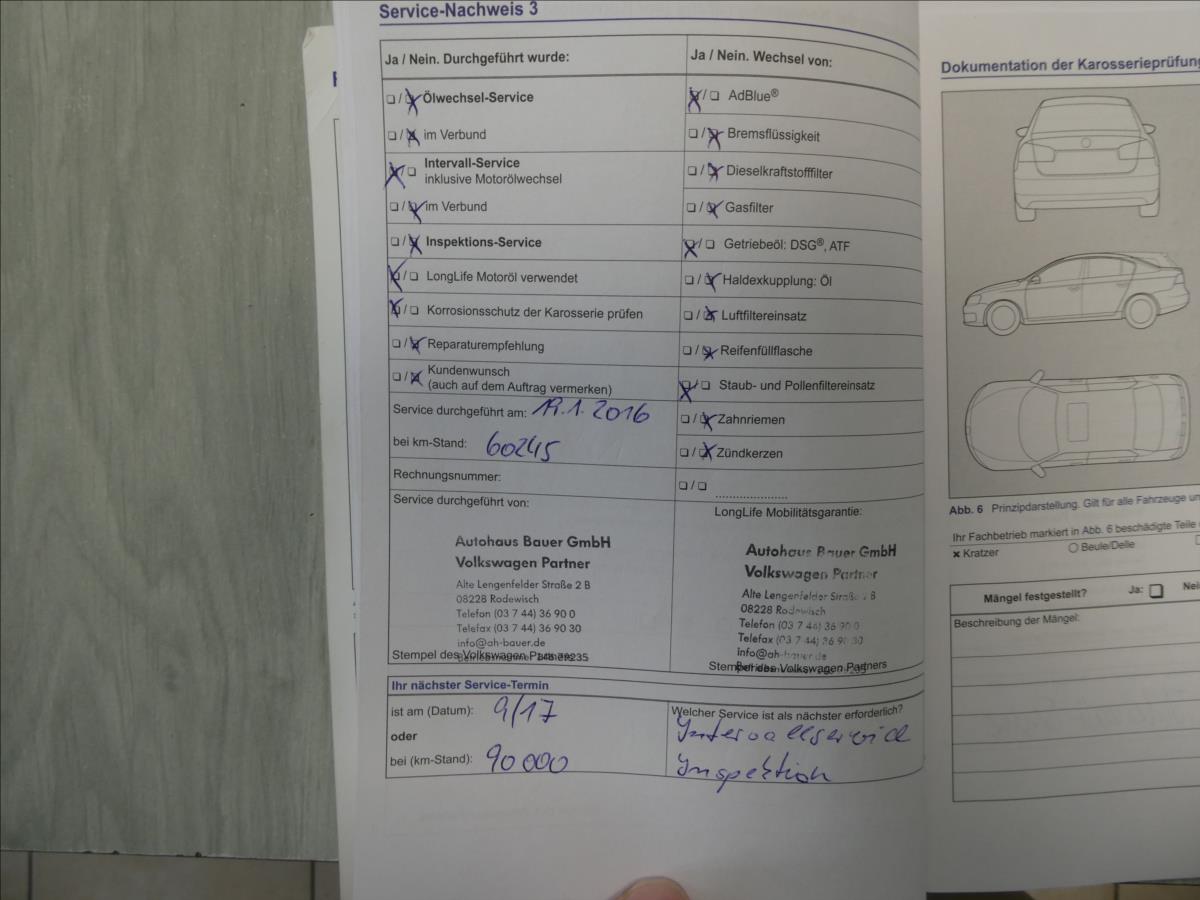 Service-Nachweis 3
Ja / Nein. Durchgeführt wurde:
❑ / ❑ Ölwechsel-Service
❑ / ❑ im Verbund
❑ / ❑ Intervall-Service
inklusive Motorölwechsel
❑ / ❑ im Verbund
❑ / ❑ Inspektions-Service
❑ / ❑ LongLife Motoröl verwendet
❑ / ❑ Korrosionsschutz der Karosserie prüfen
❑ / ❑ Reparaturempfehlung
❑ / ❑ Kundenwunsch
(auch auf dem Auftrag vermerken)
Service durchgeführt am: 19.1.2016
bei km-Stand: 60245
Rechnungsnummer:
Service durchgeführt von:
Autohaus Bauer GmbH
Volkswagen Partner
Alte Lengenfelder Straße 2 B
08228 Rodewisch
Telefon (03 7 44) 36 90 0
Telefax (03 7 44) 36 90 30
info@ah-bauer.de
Stempel des Volkswagen Partners
Ja / Nein. Wechsel von:
❑ / ❑ AdBlue®
❑ / ❑ Bremsflüssigkeit
❑ / ❑ Dieselkraftstofffilter
❑ / ❑ Gasfilter
❑ / ❑ Getriebeöl: DSG®, ATF
❑ / ❑ Haldexkupplung: Öl
❑ / ❑ Luftfiltereinsatz
❑ / ❑ Reifenfüllflasche
❑ / ❑ Staub- und Pollenfiltereinsatz
❑ / ❑ Zahnriemen
❑ / ❑ Zündkerzen
❑ / ❑ ....................
LongLife Mobilitätsgarantie:
Autohaus Bauer GmbH
Volkswagen Partner
Alte Lengenfelder Straße 2 B
08228 Rodewisch
Telefon (03 7 44) 36 90 0
Telefax (03 7 44) 36 90 30
info@ah-bauer.de
Stempel des Volkswagen Partners
Ihr nächster Service-Termin
ist am (Datum): 9/17
oder
bei (km-Stand): 90 000
Welcher Service ist als nächster erforderlich?
Intervallservice
Inspektion
Dokumentation der Karosserieprüfung
Abb. 6 Prinzipdarstellung. Gilt für alle Fahrzeuge
Ihr Fachbetrieb markiert in Abb. 6 beschädigte Teile
× Kratzer ○ Beule/Delle
Mängel festgestellt? Ja: ❑
Beschreibung der Mängel: